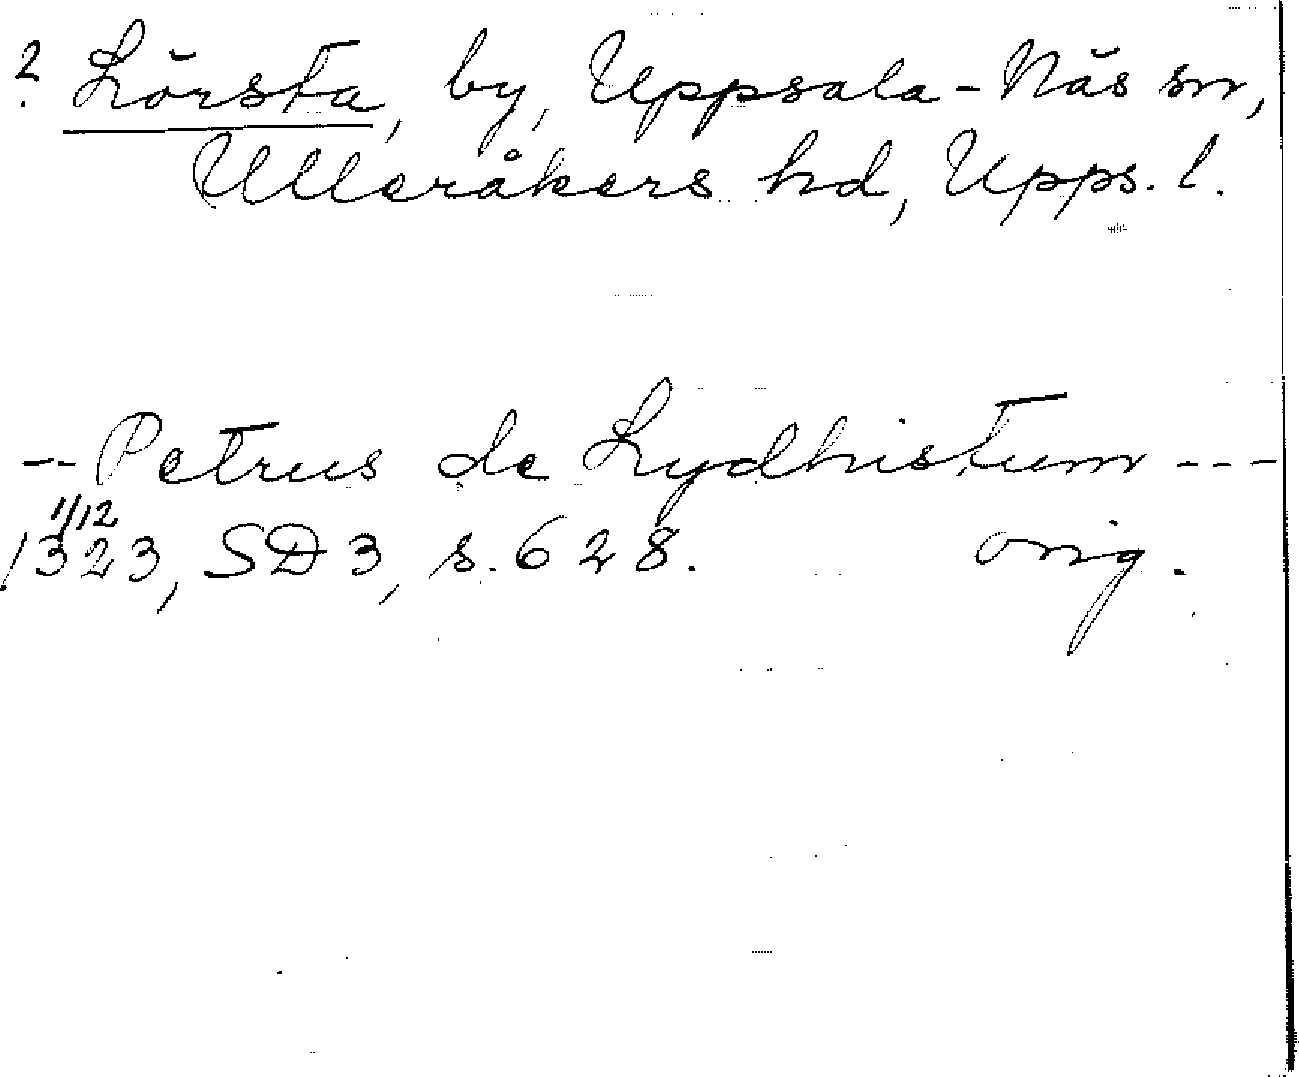 ? Lörsta, by, Uppsala-Näs sn,
Ulleråkers hd, Upps. l.
-- Petrus de Lydhistum ---
1/12
1323, SD 3, s. 628. orig.